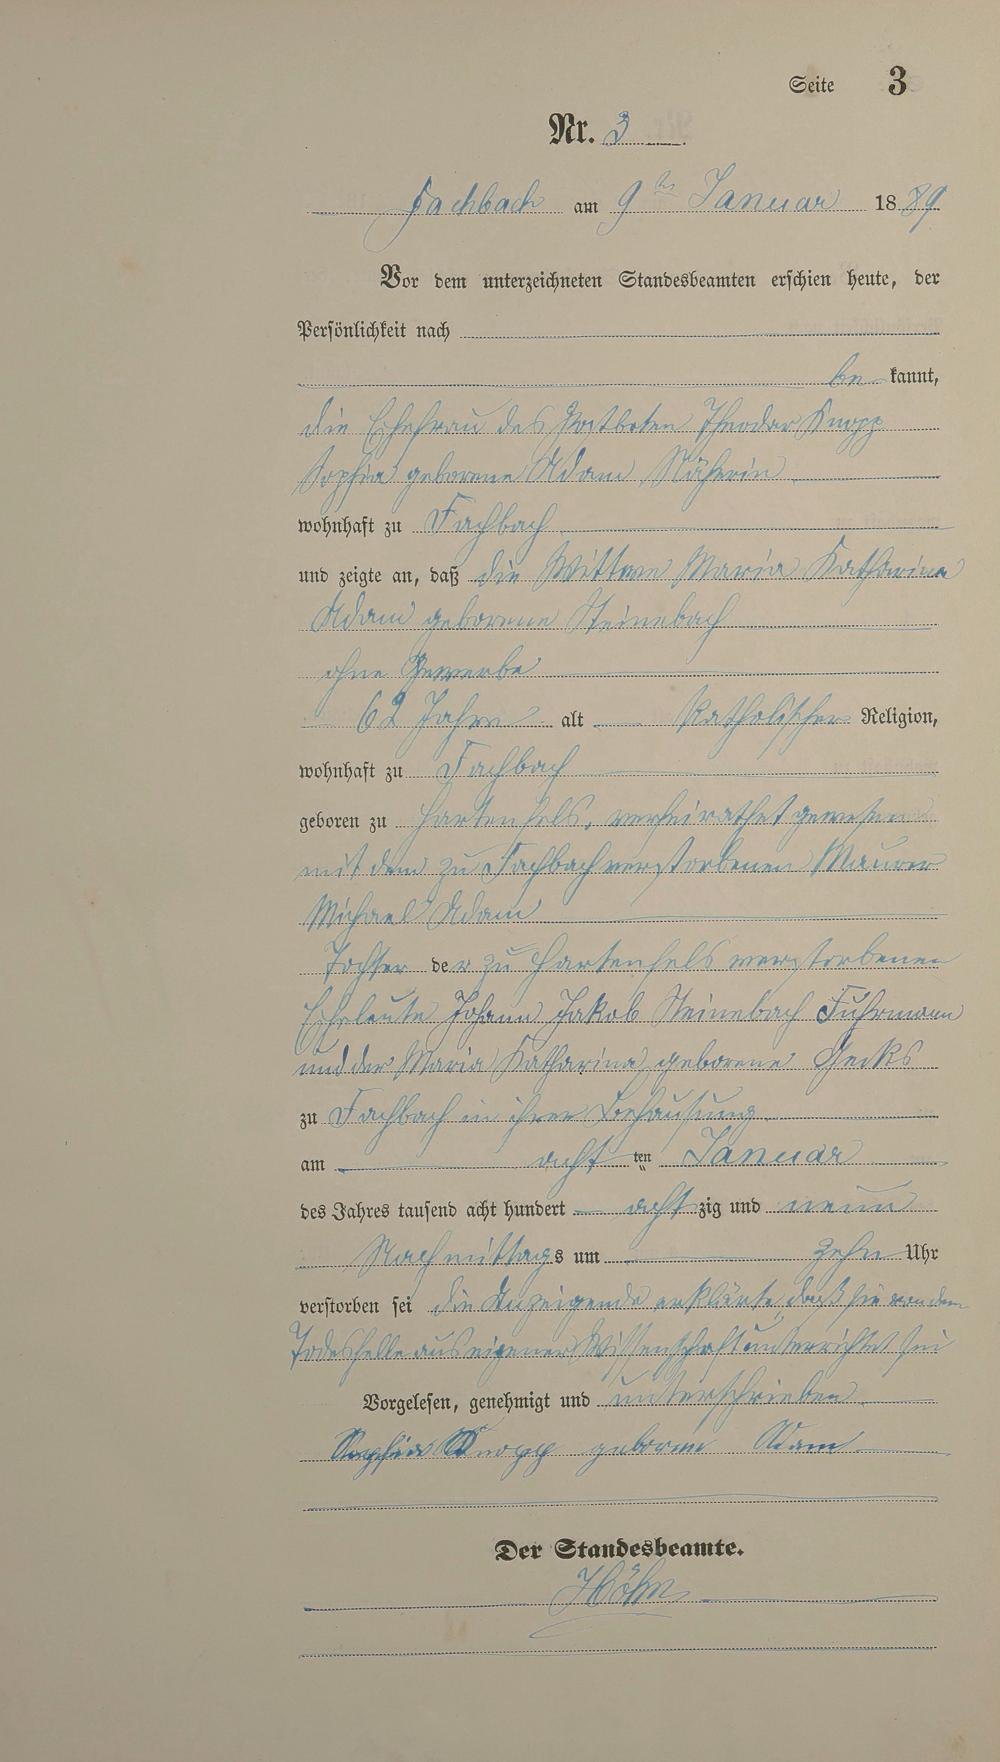 Seite 3
Nr. 3
Fachbach am 9ten Januar 1889
Vor dem unterzeichneten Standesbeamten erschien heute, der
Persönlichkeit nach
be kannt,
die Ehefrau des Postboten Theodor Knopp
Sophia geborene Adam, Näherin
wohnhaft zu Fachbach
und zeigte an, daß die Wittwe Maria Katharina
Adam geborene Steinebach
ohne Gewerbe
62 Jahre alt katholischer Religion,
wohnhaft zu Fachbach
geboren zu Hartenfels, verheirathet gewesen
mit dem zu Fachbach verstorbenen Maurer
Michael Adam
Tochter der zu Hartenfels verstorbenen
Eheleute Johann Jakob Steinebach Fuhrmann
und der Maria Katharina geborene Gecks
zu Fachbach in ihrer Behausung
am acht ten Januar
des Jahres tausend acht hundert achtzig und neun
Nachmittags um zehn Uhr
verstorben sei die Anzeigende erklärte, daß sie von dem
Todesfalle aus eigener Wissenschaft unterrichtet sei
Vorgelesen, genehmigt und unterschrieben
Sophia Knopp geborne Adam
Der Standesbeamte.
Höhn